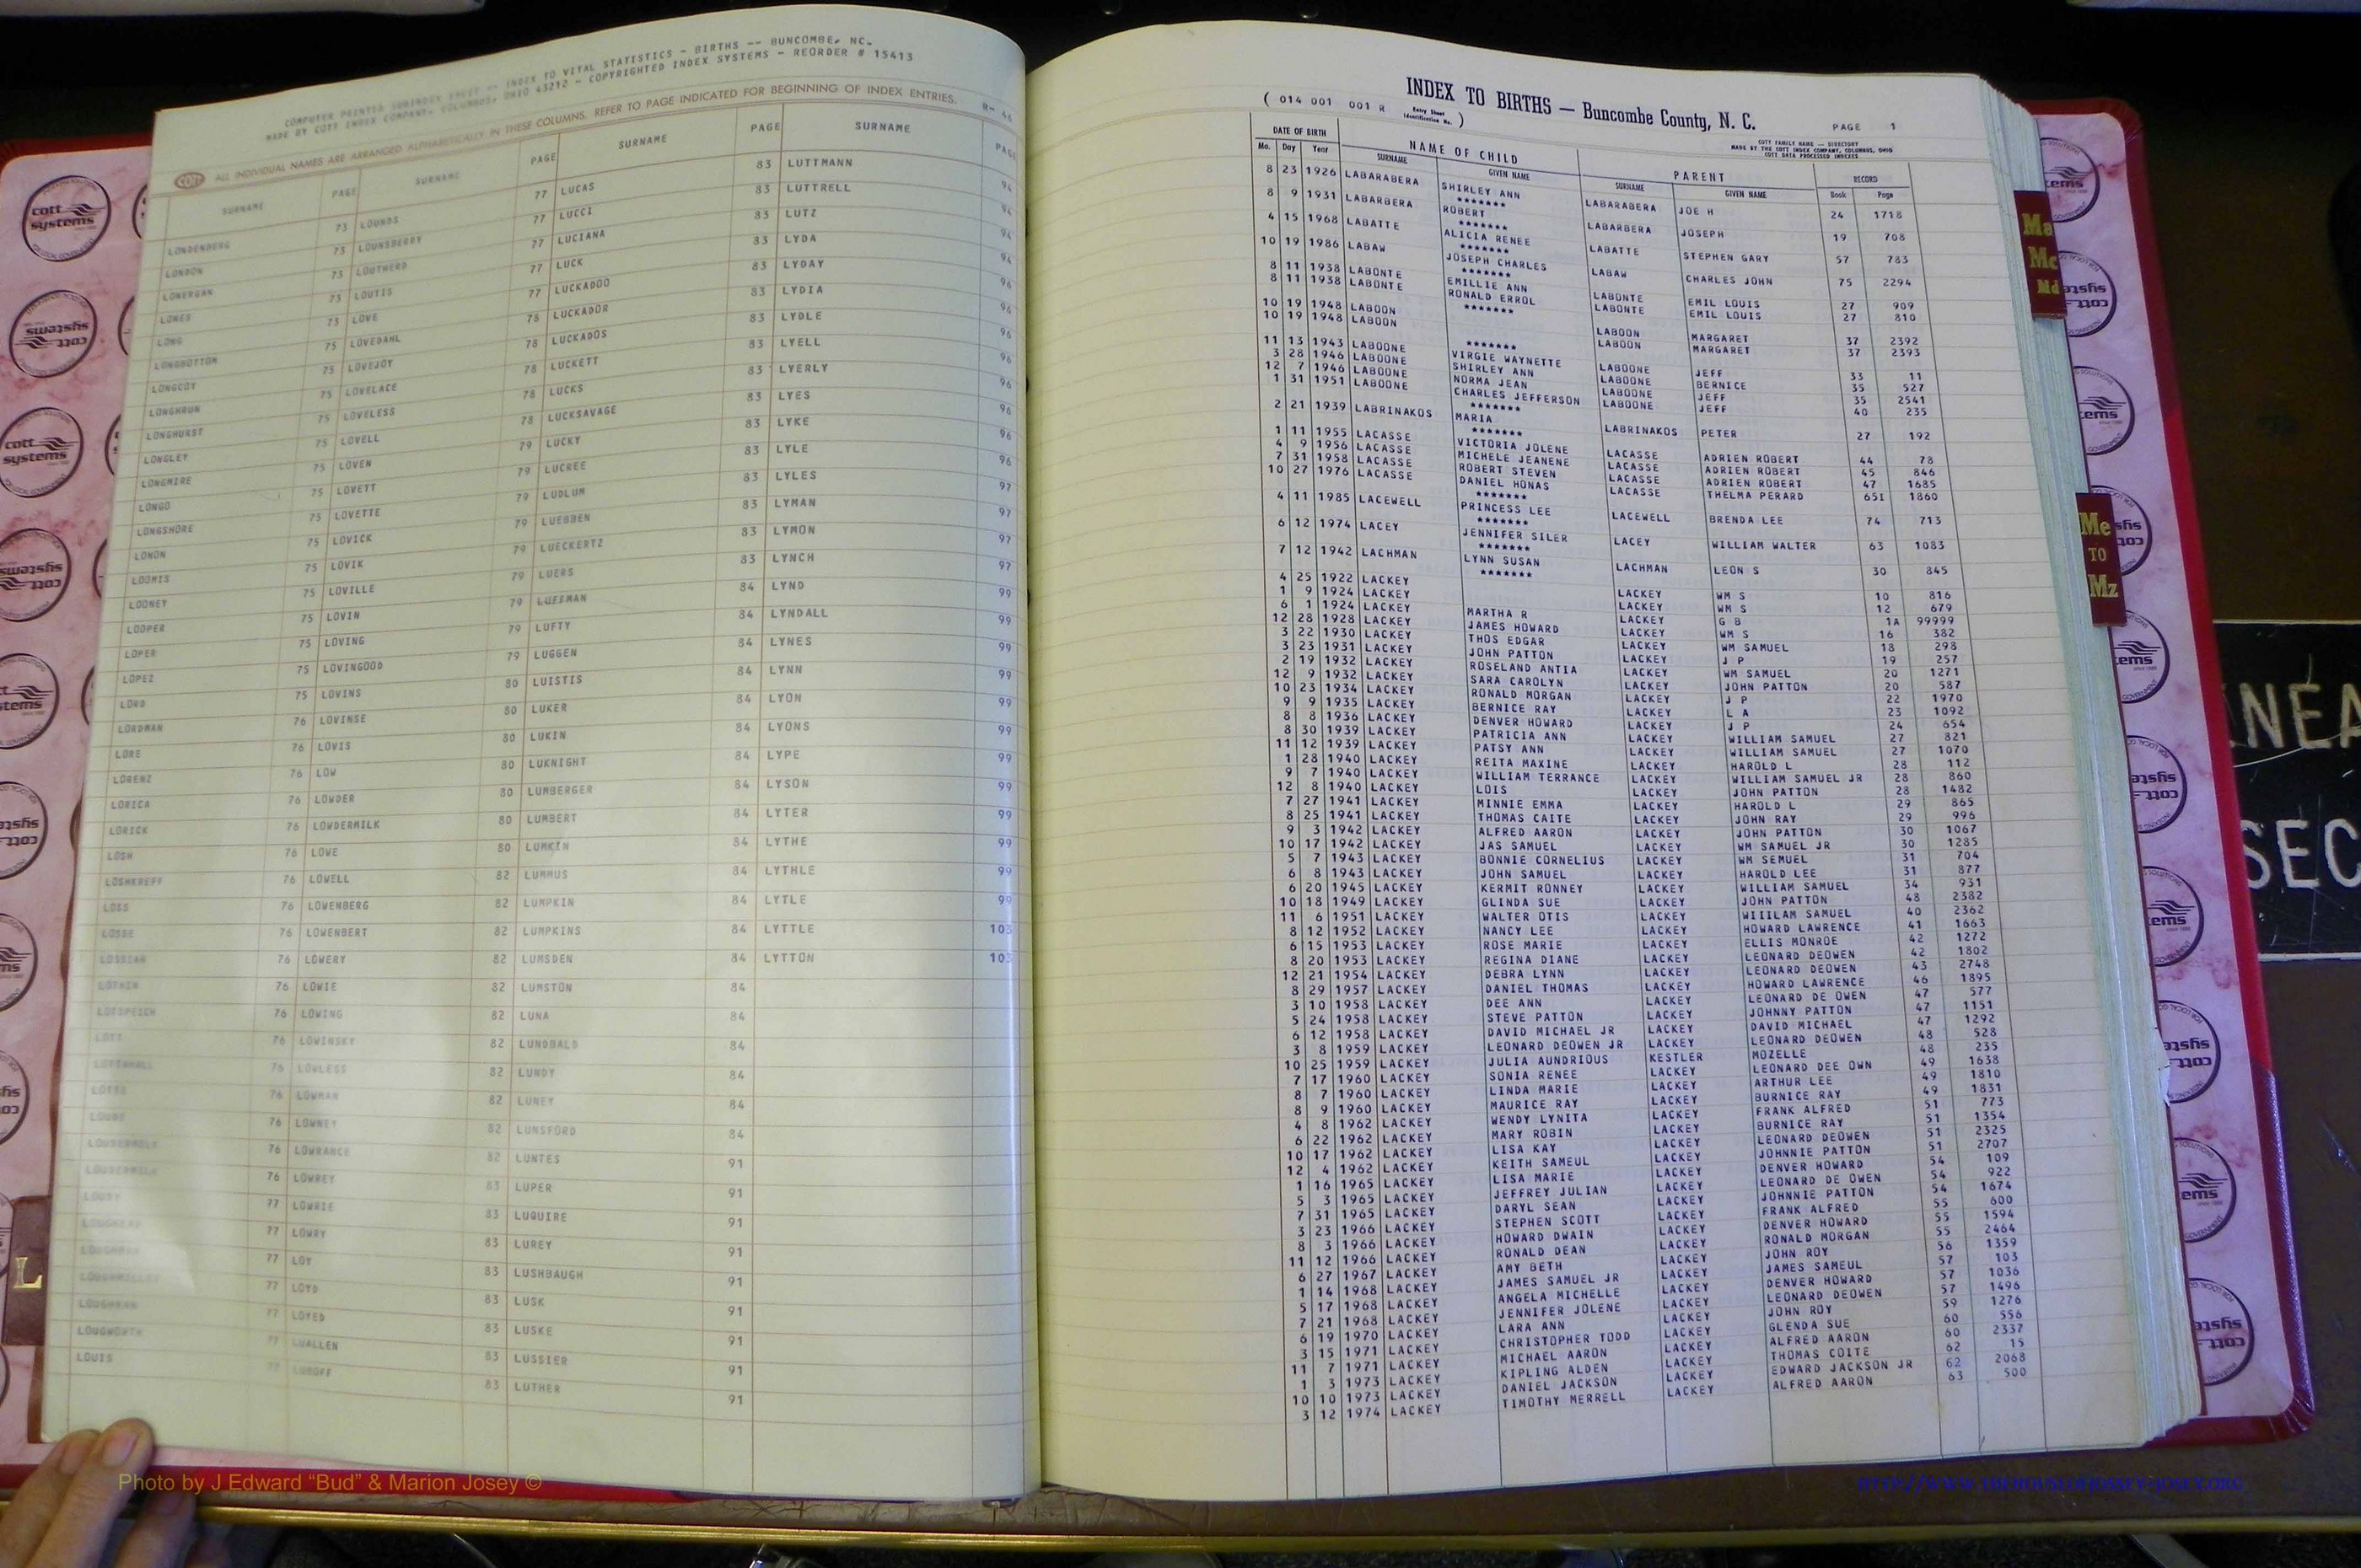 COMPUTER PRINTED SUBINDEX SHEET -- INDEX TO VITAL STATISTICS - BIRTHS -- BUNCOMBE, NC.
MADE BY COTT INDEX COMPANY, COLUMBUS, OHIO 43212 - COPYRIGHTED INDEX SYSTEMS - REORDER # 15413
COTT ALL INDIVIDUAL NAMES ARE ARRANGED ALPHABETICALLY IN THESE COLUMNS. REFER TO PAGE INDICATED FOR BEGINNING OF INDEX ENTRIES.
SURNAME PAGE SURNAME PAGE SURNAME PAGE SURNAME PAGE
LONDENBERG 73
LONDON 73
LONERGAN 73
LONES 73
LONG 73
LONGBOTTOM 75
LONGCOY 75
LONGHRUN 75
LONGHURST 75
LONGLEY 75
LONGMIRE 75
LONGO 75
LONGSHORE 75
LONON 75
LOOMIS 75
LOONEY 75
LOOPER 75
LOPER 75
LOPEZ 75
LORD 75
LORDMAN 76
LORE 76
LORENZ 76
LORICA 76
LORICK 76
LOSH 76
LOSHKREFF 76
LOSS 76
LOSSE 76
LOSSIAH 76
LOTHIN 76
LOTSPEICH 76
LOTT 76
76
76
76
76
76
77
77
77
77
LOUGWORTH
LOUIS
LOUNDS 77
LOUNSBERRY 77
LOUTHERD 77
LOUTIS 77
LOVE 77
LOVEDAHL 78
LOVEJOY 78
LOVELACE 78
LOVELESS 78
LOVELL 78
LOVEN 79
LOVETT 79
LOVETTE 79
LOVICK 79
LOVIK 79
LOVILLE 79
LOVIN 79
LOVING 79
LOVINGOOD 79
LOVINS 80
LOVINSE 80
LOVIS 80
LOW 80
LOWDER 80
LOWDERMILK 80
LOWE 80
LOWELL 82
LOWENBERG 82
LOWENBERT 82
LOWERY 82
LOWIE 82
LOWING 82
LOWINSKY 82
LOWLESS 82
LOWMAN 82
LOWNEY 82
LOWRANCE 82
LOWREY 83
LOWRIE 83
LOWRY 83
LOY 83
LOYD 83
LOYED 83
LUALLEN 83
LUBOFF 83
LUCAS 83
LUCCI 83
LUCIANA 83
LUCK 83
LUCKADOO 83
LUCKADOR 83
LUCKADOS 83
LUCKETT 83
LUCKS 83
LUCKSAVAGE 83
LUCKY 83
LUCREE 83
LUDLUM 83
LUEBBEN 83
LUECKERTZ 83
LUERS 83
LUFFMAN 84
LUFTY 84
LUGGEN 84
LUISTIS 84
LUKER 84
LUKIN 84
LUKNIGHT 84
LUMBERGER 84
LUMBERT 84
LUMKIN 84
LUMMUS 84
LUMPKIN 84
LUMPKINS 84
LUMSDEN 84
LUMSTON 84
LUNA 84
LUNDBALD 84
LUNDY 84
LUNEY 84
LUNSFORD 84
LUNTES 91
LUPER 91
LUQUIRE 91
LUREY 91
LUSHBAUGH 91
LUSK 91
LUSKE 91
LUSSIER 91
LUTHER 91
LUTTMANN 94
LUTTRELL 94
LUTZ 94
LYDA 94
LYDAY 96
LYDIA 96
LYDLE 96
LYELL 96
LYERLY 96
LYES 96
LYKE 96
LYLE 96
LYLES 97
LYMAN 97
LYMON 97
LYNCH 97
LYND 99
LYNDALL 99
LYNES 99
LYNN 99
LYON 99
LYONS 99
LYPE 99
LYSON 99
LYTER 99
LYTHE 99
LYTHLE 99
LYTLE 99
LYTTLE 103
LYTTON 103
INDEX TO BIRTHS — Buncombe County, N. C.
( 014 001 001 R Entry Sheet Identification No. ) PAGE 1
COTT FAMILY NAME — DIRECTORY
MADE BY THE COTT INDEX COMPANY, COLUMBUS, OHIO
COTT DATA PROCESSED INDEXES
DATE OF BIRTH NAME OF CHILD PARENT RECORD
Mo. Day Year SURNAME GIVEN NAME SURNAME GIVEN NAME Book Page
8 23 1926 LABARABERA SHIRLEY ANN LABARABERA JOE H 24 1718
*******
8 9 1931 LABARBERA ROBERT LABARBERA JOSEPH 19 708
*******
4 15 1968 LABATTE ALICIA RENEE LABATTE STEPHEN GARY 57 783
*******
10 19 1986 LABAW JOSEPH CHARLES LABAW CHARLES JOHN 75 2294
*******
8 11 1938 LABONTE EMILLIE ANN LABONTE EMIL LOUIS 27 909
8 11 1938 LABONTE RONALD ERROL LABONTE EMIL LOUIS 27 810
*******
10 19 1948 LABOON LABOON MARGARET 37 2392
10 19 1948 LABOON LABOON MARGARET 37 2393
*******
11 13 1943 LABOONE VIRGIE WAYNETTE LABOONE JEFF 33 11
3 28 1946 LABOONE SHIRLEY ANN LABOONE BERNICE 35 527
12 7 1946 LABOONE NORMA JEAN LABOONE JEFF 35 2541
1 31 1951 LABOONE CHARLES JEFFERSON LABOONE JEFF 40 235
*******
2 21 1939 LABRINAKOS MARIA LABRINAKOS PETER 27 192
*******
1 11 1955 LACASSE VICTORIA JOLENE LACASSE ADRIEN ROBERT 44 78
4 9 1956 LACASSE MICHELE JEANENE LACASSE ADRIEN ROBERT 45 846
7 31 1958 LACASSE ROBERT STEVEN LACASSE ADRIEN ROBERT 47 1685
10 27 1976 LACASSE DANIEL HONAS LACASSE THELMA PERARD 65I 1860
*******
4 11 1985 LACEWELL PRINCESS LEE LACEWELL BRENDA LEE 74 713
*******
6 12 1974 LACEY JENNIFER SILER LACEY WILLIAM WALTER 63 1083
*******
7 12 1942 LACHMAN LYNN SUSAN LACHMAN LEON S 30 845
*******
4 25 1922 LACKEY LACKEY WM S 10 816
1 9 1924 LACKEY LACKEY WM S 12 679
6 1 1924 LACKEY MARTHA R LACKEY G B 1A 99999
12 28 1928 LACKEY JAMES HOWARD LACKEY WM S 16 382
3 22 1930 LACKEY THOS EDGAR LACKEY WM SAMUEL 18 298
3 23 1931 LACKEY JOHN PATTON LACKEY J P 19 257
2 19 1932 LACKEY ROSELAND ANTIA LACKEY WM SAMUEL 20 1271
12 9 1932 LACKEY SARA CAROLYN LACKEY JOHN PATTON 20 587
10 23 1934 LACKEY RONALD MORGAN LACKEY J P 22 1970
9 9 1935 LACKEY BERNICE RAY LACKEY L A 23 1092
8 8 1936 LACKEY DENVER HOWARD LACKEY J P 24 654
8 30 1939 LACKEY PATRICIA ANN LACKEY WILLIAM SAMUEL 27 821
11 12 1939 LACKEY PATSY ANN LACKEY WILLIAM SAMUEL 27 1070
1 28 1940 LACKEY REITA MAXINE LACKEY HAROLD L 28 112
9 7 1940 LACKEY WILLIAM TERRANCE LACKEY WILLIAM SAMUEL JR 28 860
12 8 1940 LACKEY LOIS LACKEY JOHN PATTON 28 1482
7 27 1941 LACKEY MINNIE EMMA LACKEY HAROLD L 29 865
8 25 1941 LACKEY THOMAS CAITE LACKEY JOHN RAY 29 996
9 3 1942 LACKEY ALFRED AARON LACKEY JOHN PATTON 30 1067
10 17 1942 LACKEY JAS SAMUEL LACKEY WM SAMUEL JR 30 1285
5 7 1943 LACKEY BONNIE CORNELIUS LACKEY WM SEMUEL 31 704
6 8 1943 LACKEY JOHN SAMUEL LACKEY HAROLD LEE 31 877
6 20 1945 LACKEY KERMIT RONNEY LACKEY WILLIAM SAMUEL 34 931
10 18 1949 LACKEY GLINDA SUE LACKEY JOHN PATTON 48 2382
11 6 1951 LACKEY WALTER OTIS LACKEY WIIILAM SAMUEL 40 2362
8 12 1952 LACKEY NANCY LEE LACKEY HOWARD LAWRENCE 41 1663
6 15 1953 LACKEY ROSE MARIE LACKEY ELLIS MONROE 42 1272
8 20 1953 LACKEY REGINA DIANE LACKEY LEONARD DEOWEN 42 1802
12 21 1954 LACKEY DEBRA LYNN LACKEY LEONARD DEOWEN 43 2748
8 29 1957 LACKEY DANIEL THOMAS LACKEY HOWARD LAWRENCE 46 1895
3 10 1958 LACKEY DEE ANN LACKEY LEONARD DE OWEN 47 577
5 24 1958 LACKEY STEVE PATTON LACKEY JOHNNY PATTON 47 1151
6 12 1958 LACKEY DAVID MICHAEL JR LACKEY DAVID MICHAEL 47 1292
3 8 1959 LACKEY LEONARD DEOWEN JR LACKEY LEONARD DEOWEN 48 528
10 25 1959 LACKEY JULIA AUNDRIOUS KESTLER MOZELLE 48 235
7 17 1960 LACKEY SONIA RENEE LACKEY LEONARD DEE OWN 49 1638
8 7 1960 LACKEY LINDA MARIE LACKEY ARTHUR LEE 49 1810
8 9 1960 LACKEY MAURICE RAY LACKEY BURNICE RAY 49 1831
4 8 1962 LACKEY WENDY LYNITA LACKEY FRANK ALFRED 51 773
6 22 1962 LACKEY MARY ROBIN LACKEY BURNICE RAY 51 1354
10 17 1962 LACKEY LISA KAY LACKEY LEONARD DEOWEN 51 2325
12 4 1962 LACKEY KEITH SAMEUL LACKEY JOHNNIE PATTON 51 2707
1 16 1965 LACKEY LISA MARIE LACKEY DENVER HOWARD 54 109
5 3 1965 LACKEY JEFFREY JULIAN LACKEY LEONARD DE OWEN 54 922
7 31 1965 LACKEY DARYL SEAN LACKEY JOHNNIE PATTON 54 1674
3 23 1966 LACKEY STEPHEN SCOTT LACKEY FRANK ALFRED 55 600
8 3 1966 LACKEY HOWARD DWAIN LACKEY DENVER HOWARD 55 1594
11 12 1966 LACKEY RONALD DEAN LACKEY RONALD MORGAN 55 2464
6 27 1967 LACKEY AMY BETH LACKEY JOHN ROY 56 1359
1 14 1968 LACKEY JAMES SAMUEL JR LACKEY JAMES SAMEUL 57 103
5 17 1968 LACKEY ANGELA MICHELLE LACKEY DENVER HOWARD 57 1036
7 21 1968 LACKEY JENNIFER JOLENE LACKEY LEONARD DEOWEN 57 1496
6 19 1970 LACKEY LARA ANN LACKEY JOHN ROY 59 1276
3 15 1971 LACKEY CHRISTOPHER TODD LACKEY GLENDA SUE 60 556
11 7 1971 LACKEY MICHAEL AARON LACKEY ALFRED AARON 60 2337
1 3 1973 LACKEY KIPLING ALDEN LACKEY THOMAS COITE 62 15
10 10 1973 LACKEY DANIEL JACKSON LACKEY EDWARD JACKSON JR 62 2068
3 12 1974 LACKEY TIMOTHY MERRELL LACKEY ALFRED AARON 63 500
Ma
Mc
Md
Me
TO
Mz
L
cott
systems
NEA
SEC
Photo by J Edward “Bud” & Marion Josey ©
HTTP://WWW.THEHOUSEOFJOSSEY-JOSEY.ORG